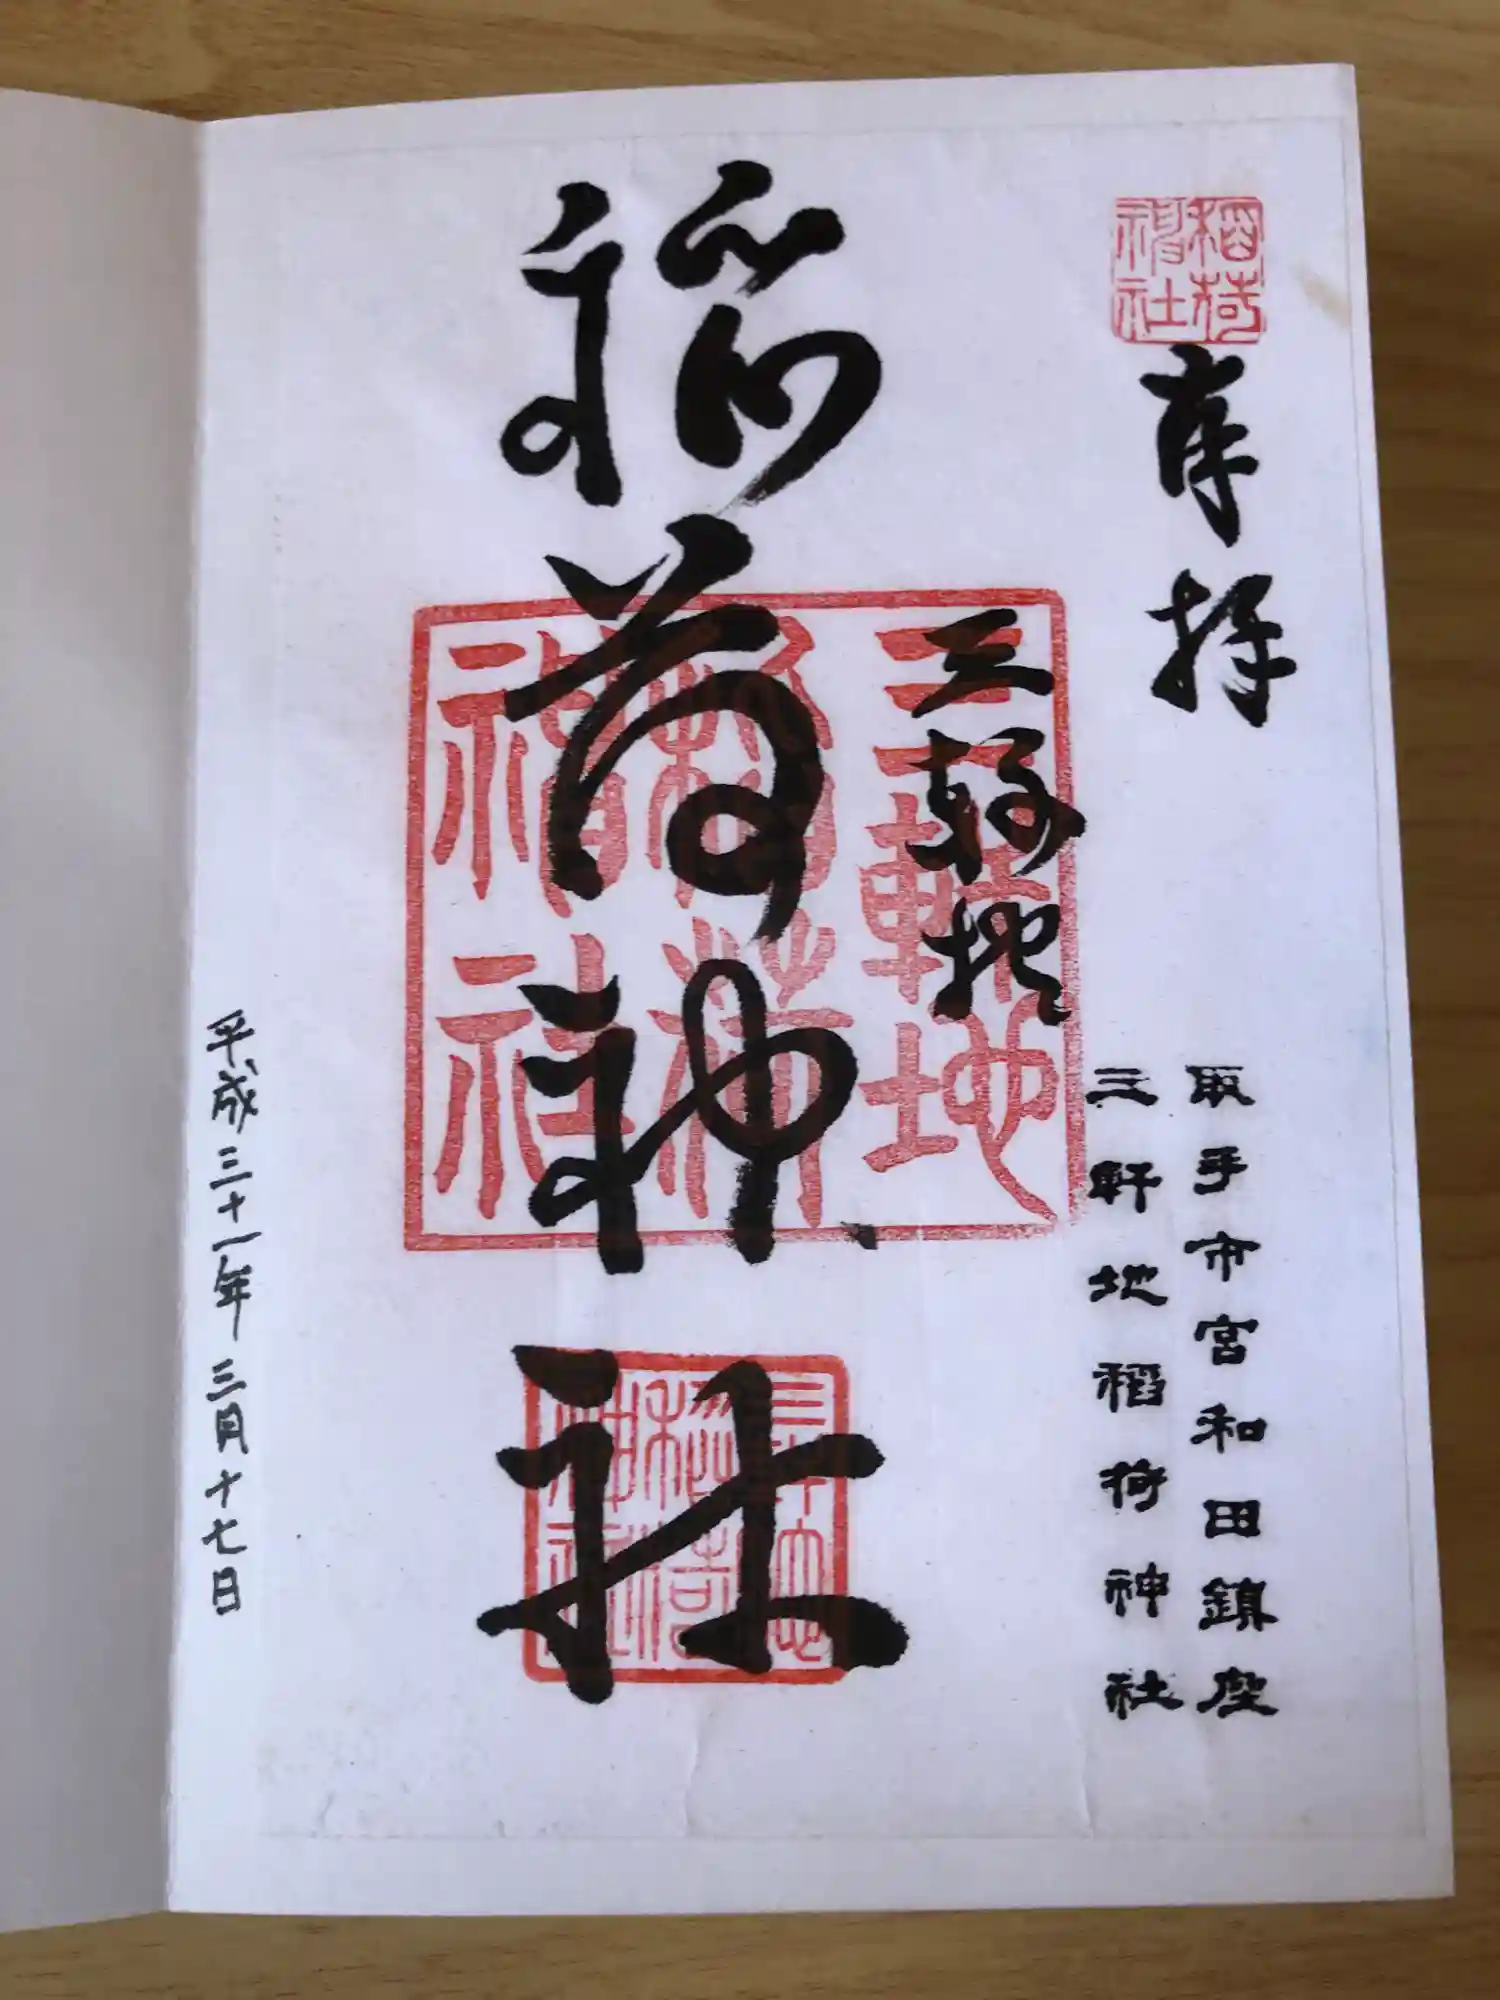 稲荷神社
奉拝
取手市宮和田鎮座
三軒地稲荷神社
三軒地
三軒地稲荷神社
稲荷神社
平成三十一年三月十七日